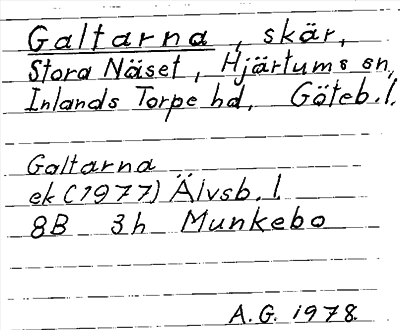 Galtarna, skär,
Stora Näset, Hjärtums sn,
Inlands Torpe hd, Göteb.l.
Galtarna
ek (1977) Älvsb.l.
8B 3h Munkebo
A.G. 1978.